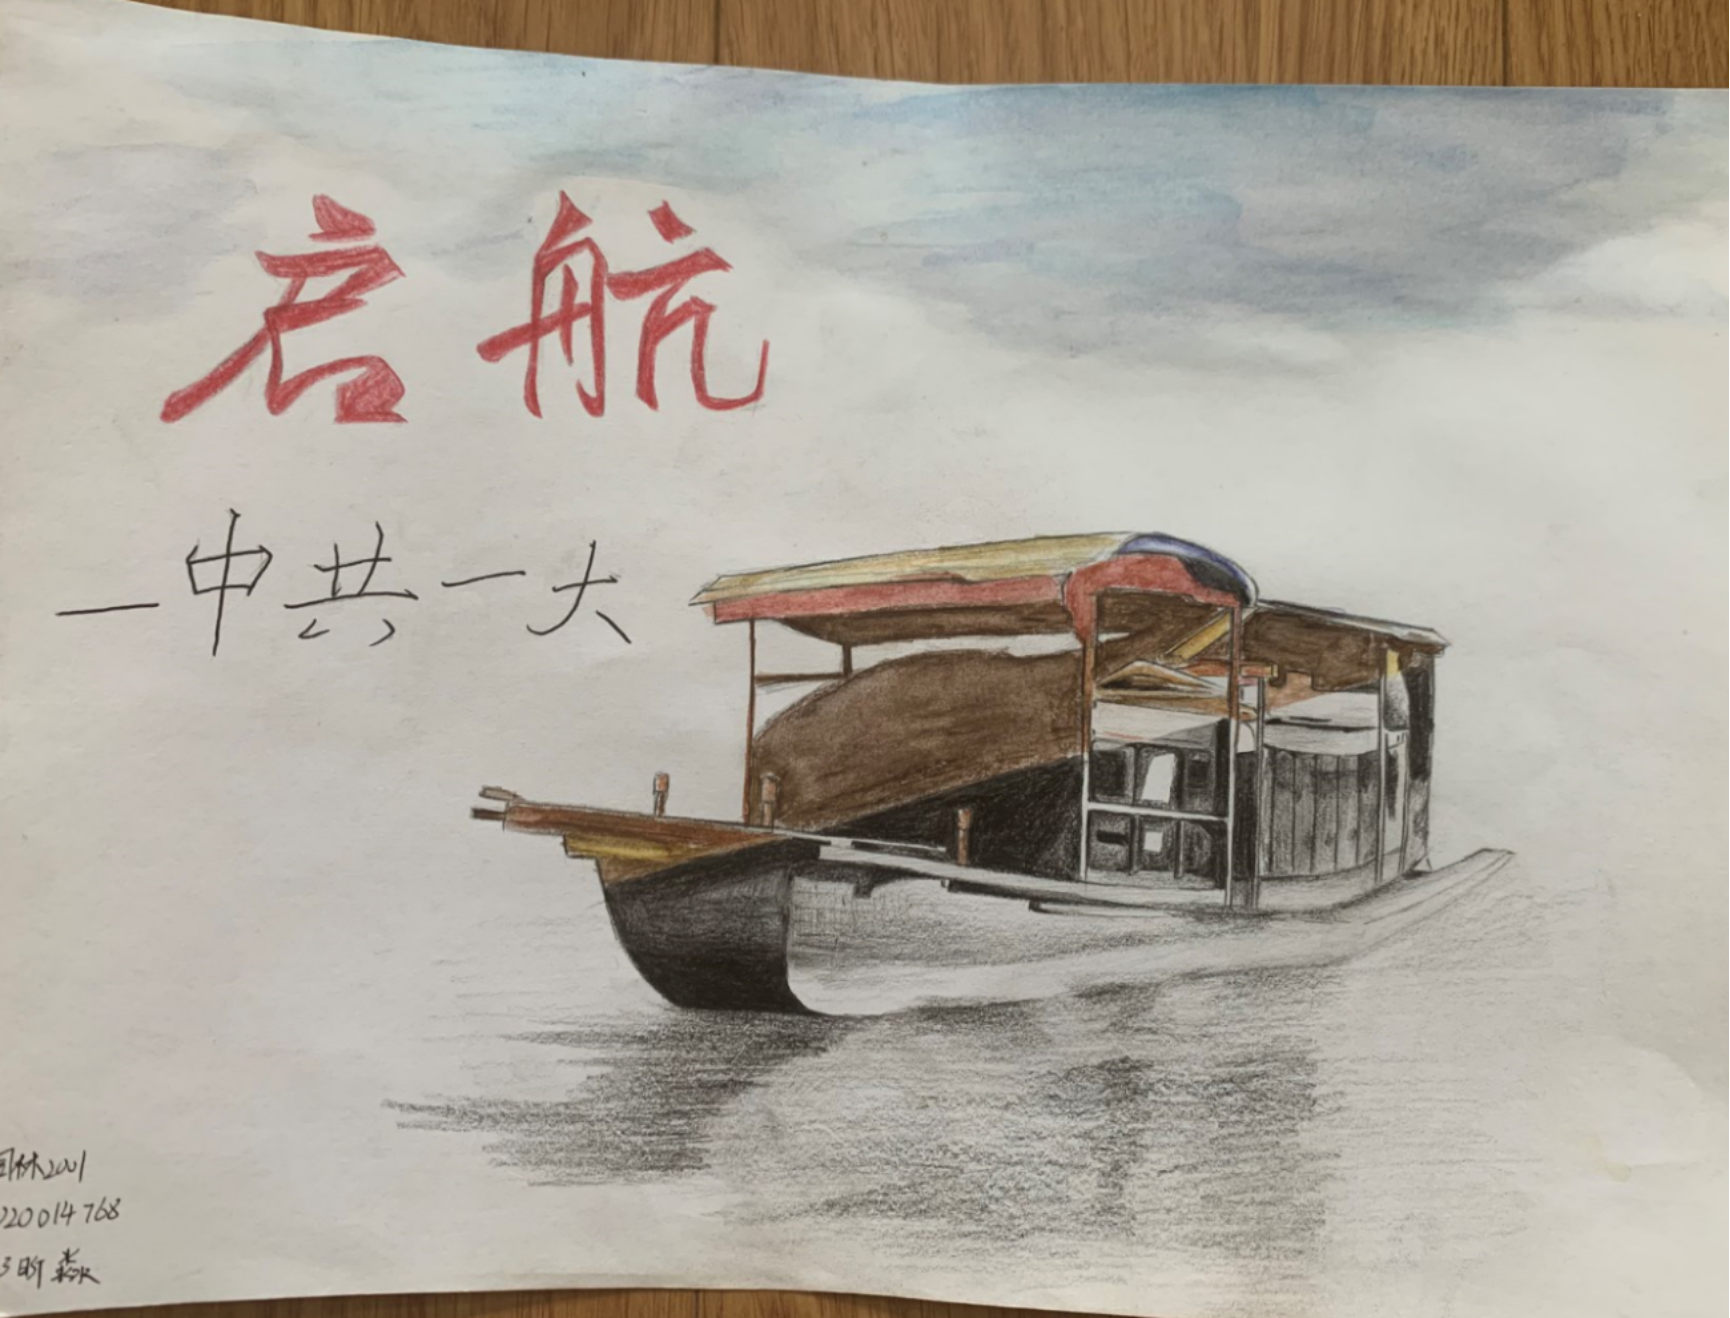 启航
—中共一大
林2001
220014768
昕淼